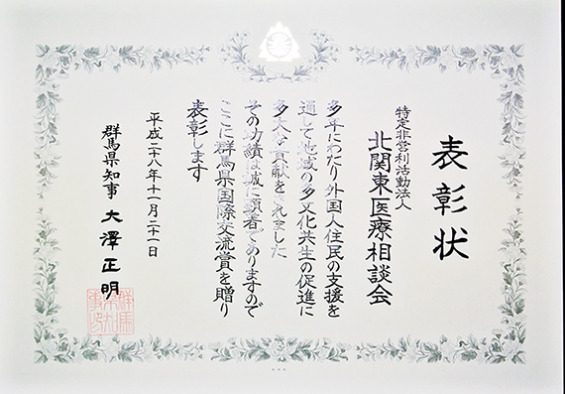 表彰状
特定非営利活動法人
北関東医療相談会
多年にわたり外国人住民の支援を
通して地域の多文化共生の促進に
多大な貢献をされました
その功績は誠に顕著でありますので
ここに群馬県国際交流賞を贈り
表彰します
平成二十八年十一月二十一日
群馬県知事 大澤正明